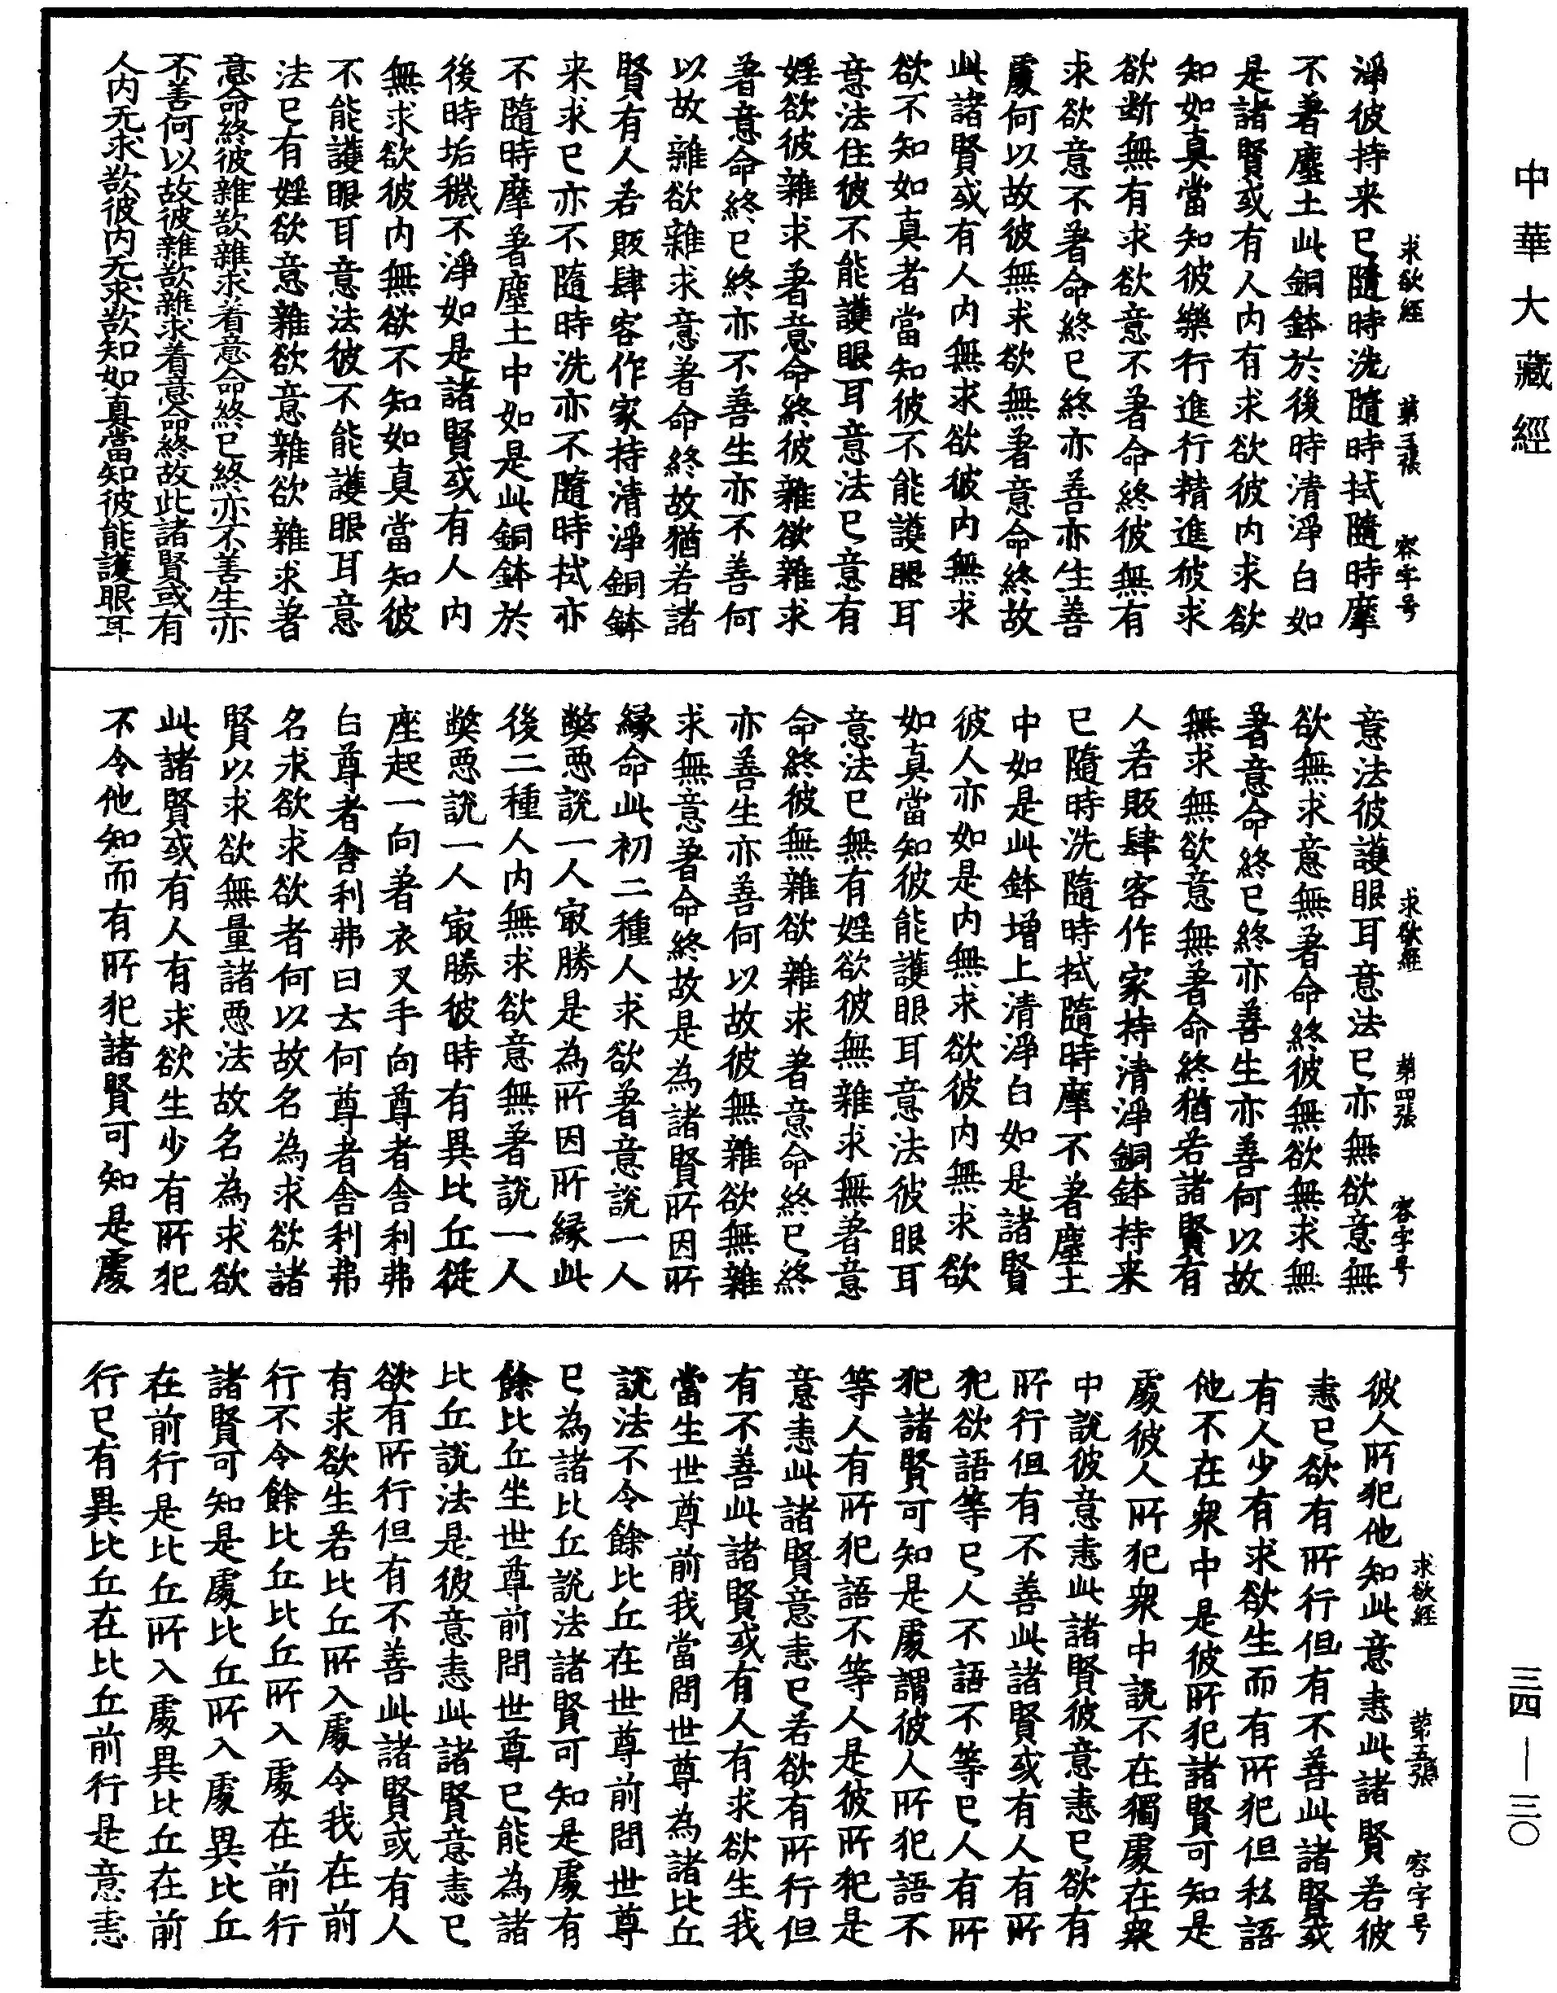 中華大藏經
求欲經　第三張　容字号
淨彼持来已隨時洗隨時拭隨時摩
不著塵土此銅鉢於後時清淨白如
是諸賢或有人內有求欲彼內求欲
知如真當知彼樂行進行精進彼求
欲断無有求欲意不著命終彼無有
求欲意不著命終已終亦善亦生善
處何以故彼無求欲無著意命終故
此諸賢或有人內無求欲彼內無求
欲不知如真者當知彼不能護眼耳
意法住彼不能護眼耳意法已意有
婬欲彼雜求著意命終彼雜欲雜求
著意命終已終亦不善生亦不善何
以故雜欲雜求意著命終故猶若諸
賢有人若販肆客作家持清淨銅鉢
来求已亦不隨時洗亦不隨時拭亦
不隨時摩著塵土中如是此銅鉢於
後時垢穢不淨如是諸賢或有人內
無求欲彼內無欲不知如真當知彼
不能護眼耳意法彼不能護眼耳意
法已有婬欲意雜欲意雜欲雜求著
意命終彼雜欲雜求着意命終已終亦不善生亦
不善何以故彼雜欲雜求着意命終故此諸賢或有
人內无求欲彼內无求欲知如真當知彼能護眼耳
求欲經　第四張　容字号
意法彼護眼耳意法已亦無欲意無
欲無求意無著命終彼無欲無求無
著意命終已終亦善生亦善何以故
無求無欲意無著命終猶若諸賢有
人若販肆客作家持清淨銅鉢持来
已隨時洗隨時拭隨時摩不著塵土
中如是此鉢增上清淨白如是諸賢
彼人亦如是內無求欲彼內無求欲
如真當知彼能護眼耳意法彼眼耳
意法已無有婬欲彼無雜求無著意
命終彼無雜欲雜求著意命終已終
亦善生亦善何以故彼無雜欲無雜
求無意著命終故是為諸賢所因所
緣命此初二種人求欲著意說一人
弊惡說一人㝡勝是為所因所緣此
後二種人內無求欲意無著說一人
弊惡說一人㝡勝彼時有異比丘從
座起一向著衣叉手向尊者舍利弗
白尊者舍利弗曰云何尊者舍利弗
名求欲求欲者何以故名為求欲諸
賢以求欲無量諸惡法故名為求欲
此諸賢或有人有求欲生少有所犯
不令他知而有所犯諸賢可知是處
求欲經　第五張　容字号
彼人所犯他知此意恚此諸賢若彼
恚已欲有所行但有不善此諸賢或
有人少有求欲生而有所犯但私語
他不在衆中是彼所犯諸賢可知是
處彼人所犯衆中說不在獨處在衆
中說彼意恚此諸賢彼意恚已欲有
所行但有不善此諸賢或有人有所
犯欲語等已人不語不等已人有所
犯諸賢可知是處謂彼人所犯語不
等人有所犯語不等人是彼所犯是
意恚此諸賢意恚已若欲有所行但
有不善此諸賢或有人有求欲生我
當生世尊前我當問世尊為諸比丘
說法不令餘比丘在世尊前問世尊
已為諸比丘說法諸賢可知是處有
餘比丘坐世尊前問世尊已能為諸
比丘說法是彼意恚此諸賢意恚已
欲有所行但有不善此諸賢或有人
有求欲生若比丘所入處令我在前
行不令餘比丘比丘所入處在前行
諸賢可知是處比丘所入處異比丘
在前行是比丘所入處異比丘在前
行已有異比丘在比丘前行是意恚
三四—三〇